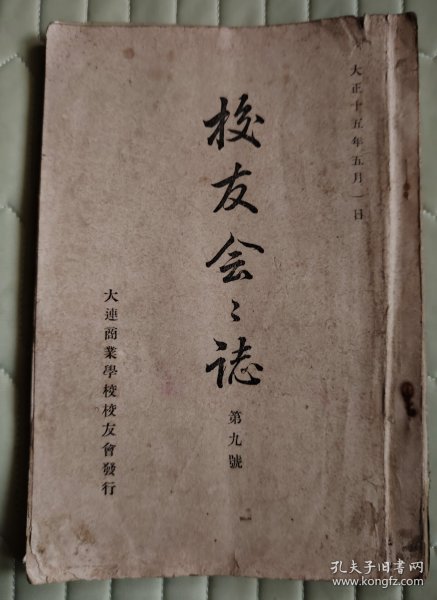 大正十五年五月一日
校友会々誌
第九號
大連商業學校校友會發行
孔夫子旧书网
www.kongfz.com